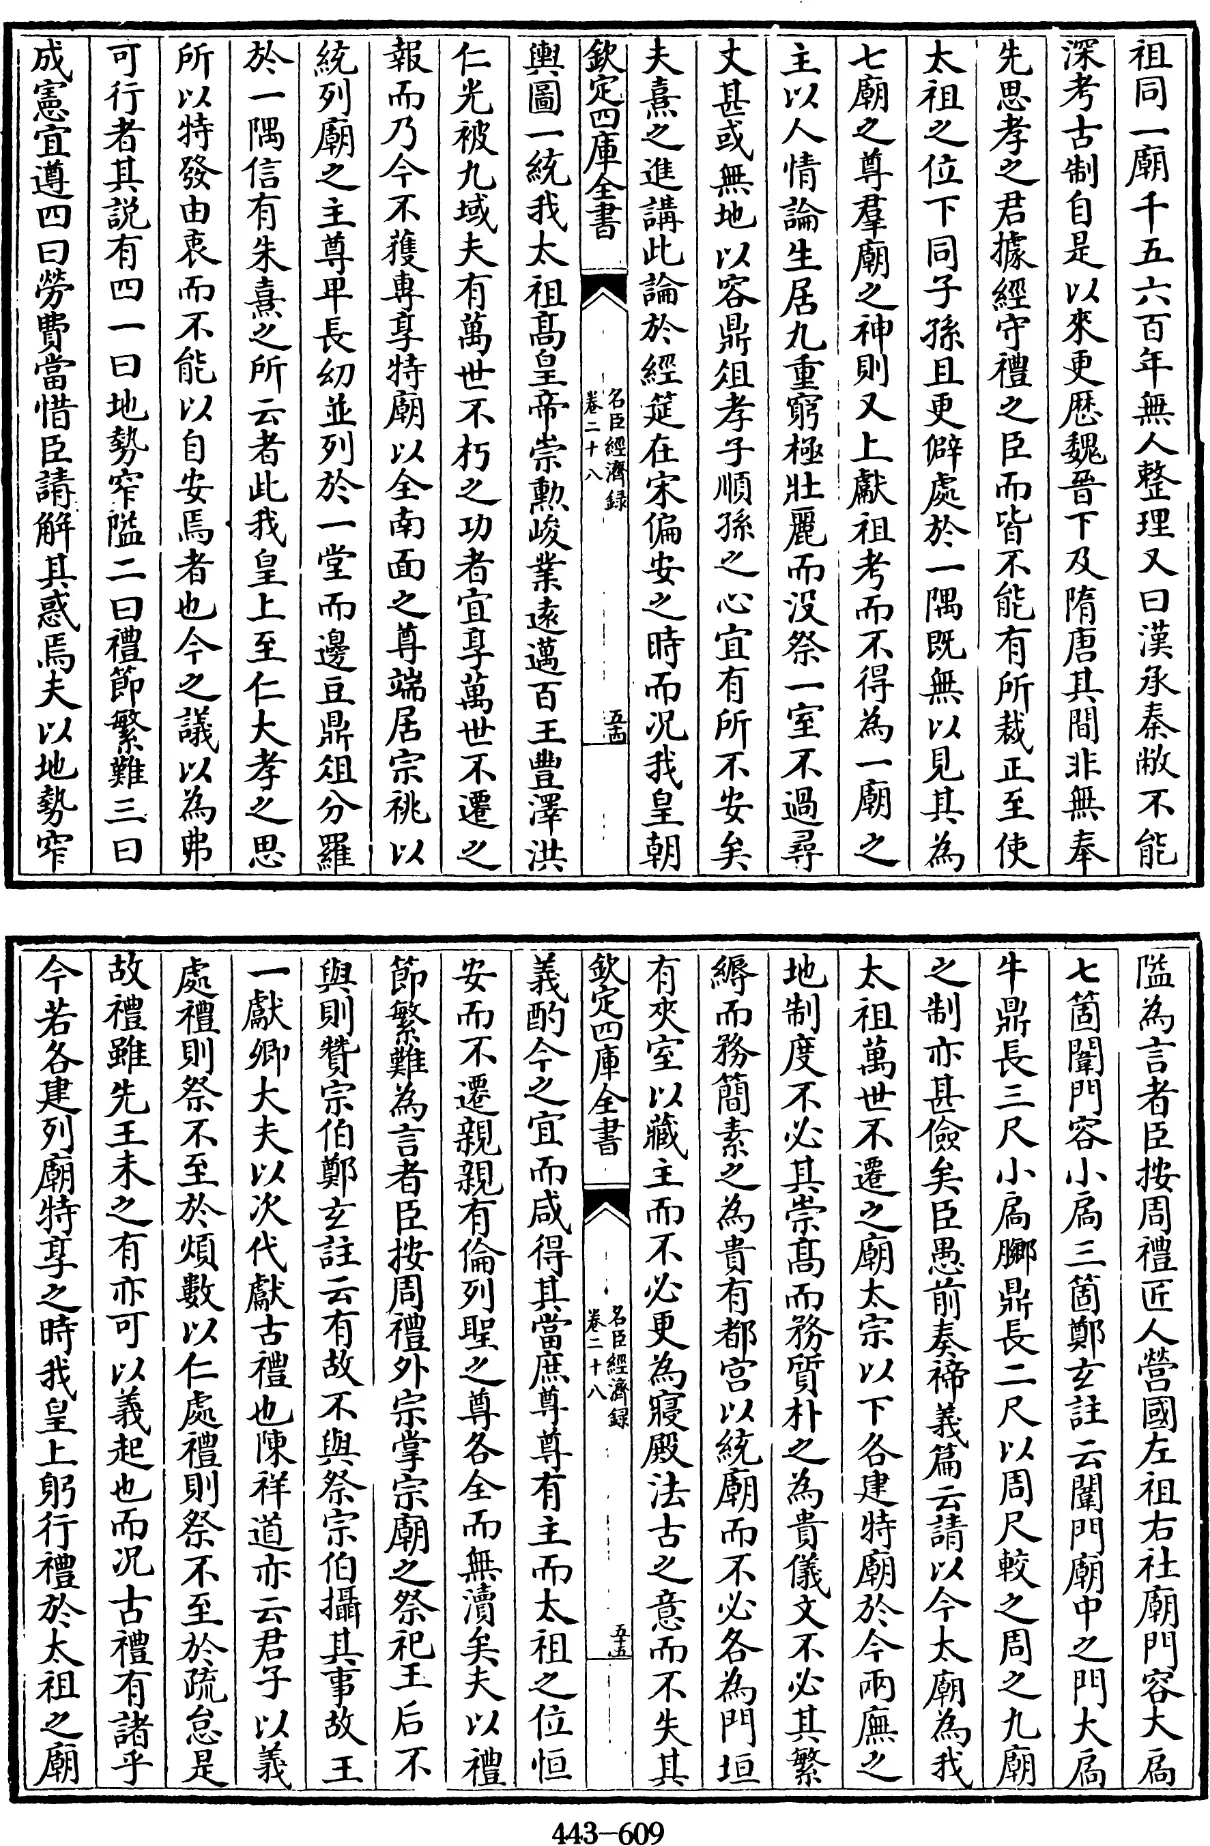 祖同一廟千五六百年無人整理又曰漢承秦敝不能
深考古制自是以來更歴魏晉下及隋唐其間非無奉
先思孝之君據經守禮之臣而皆不能有所裁正至使
太祖之位下同子孫且更僻處於一隅既無以見其為
七廟之尊羣廟之神則又上獻祖考而不得為一廟之
主以人情論生居九重窮極壯麗而没祭一室不過尋
丈甚或無地以容鼎俎孝子順孫之心宜有所不安矣
夫熹之進講此論於經筵在宋偏安之時而况我皇朝
欽定四庫全書
名臣經濟録
卷二十八
五十四
輿圖一統我太祖髙皇帝崇勲峻業逺邁百王豐澤洪
仁光被九域夫有萬世不朽之功者宜享萬世不遷之
報而乃今不獲專享特廟以全南面之尊端居宗祧以
統列廟之主尊卑長幼並列於一堂而籩豆鼎俎分羅
於一隅信有朱熹之所云者此我皇上至仁大孝之思
所以特發由衷而不能以自安焉者也今之議以為弗
可行者其説有四一曰地勢窄隘二曰禮節繁難三曰
成憲宜遵四曰勞費當惜臣請解其惑焉夫以地勢窄
隘為言者臣按周禮匠人營國左祖右社廟門容大扃
七箇闈門容小扃三箇鄭玄註云闈門廟中之門大扃
牛鼎長三尺小扃膷鼎長二尺以周尺較之周之九廟
之制亦甚儉矣臣愚前奏禘義篇云請以今太廟為我
太祖萬世不遷之廟太宗以下各建特廟於今兩廡之
地制度不必其崇髙而務質朴之為貴儀文不必其繁
縟而務簡素之為貴有都宫以統廟而不必各為門垣
有夾室以藏主而不必更為寢殿法古之意而不失其
欽定四庫全書
名臣經濟録
卷二十八
五十五
義酌今之宜而咸得其當庶尊尊有主而太祖之位恒
安而不遷親親有倫列聖之尊各全而無瀆矣夫以禮
節繁難為言者臣按周禮外宗掌宗廟之祭祀王后不
與則贊宗伯鄭玄註云有故不與祭宗伯攝其事故王
一獻卿大夫以次代獻古禮也陳祥道亦云君子以義
處禮則祭不至於煩數以仁處禮則祭不至於疏怠是
故禮雖先王未之有亦可以義起也而况古禮有諸乎
今若各建列廟特享之時我皇上躬行禮於太祖之廟
443-609